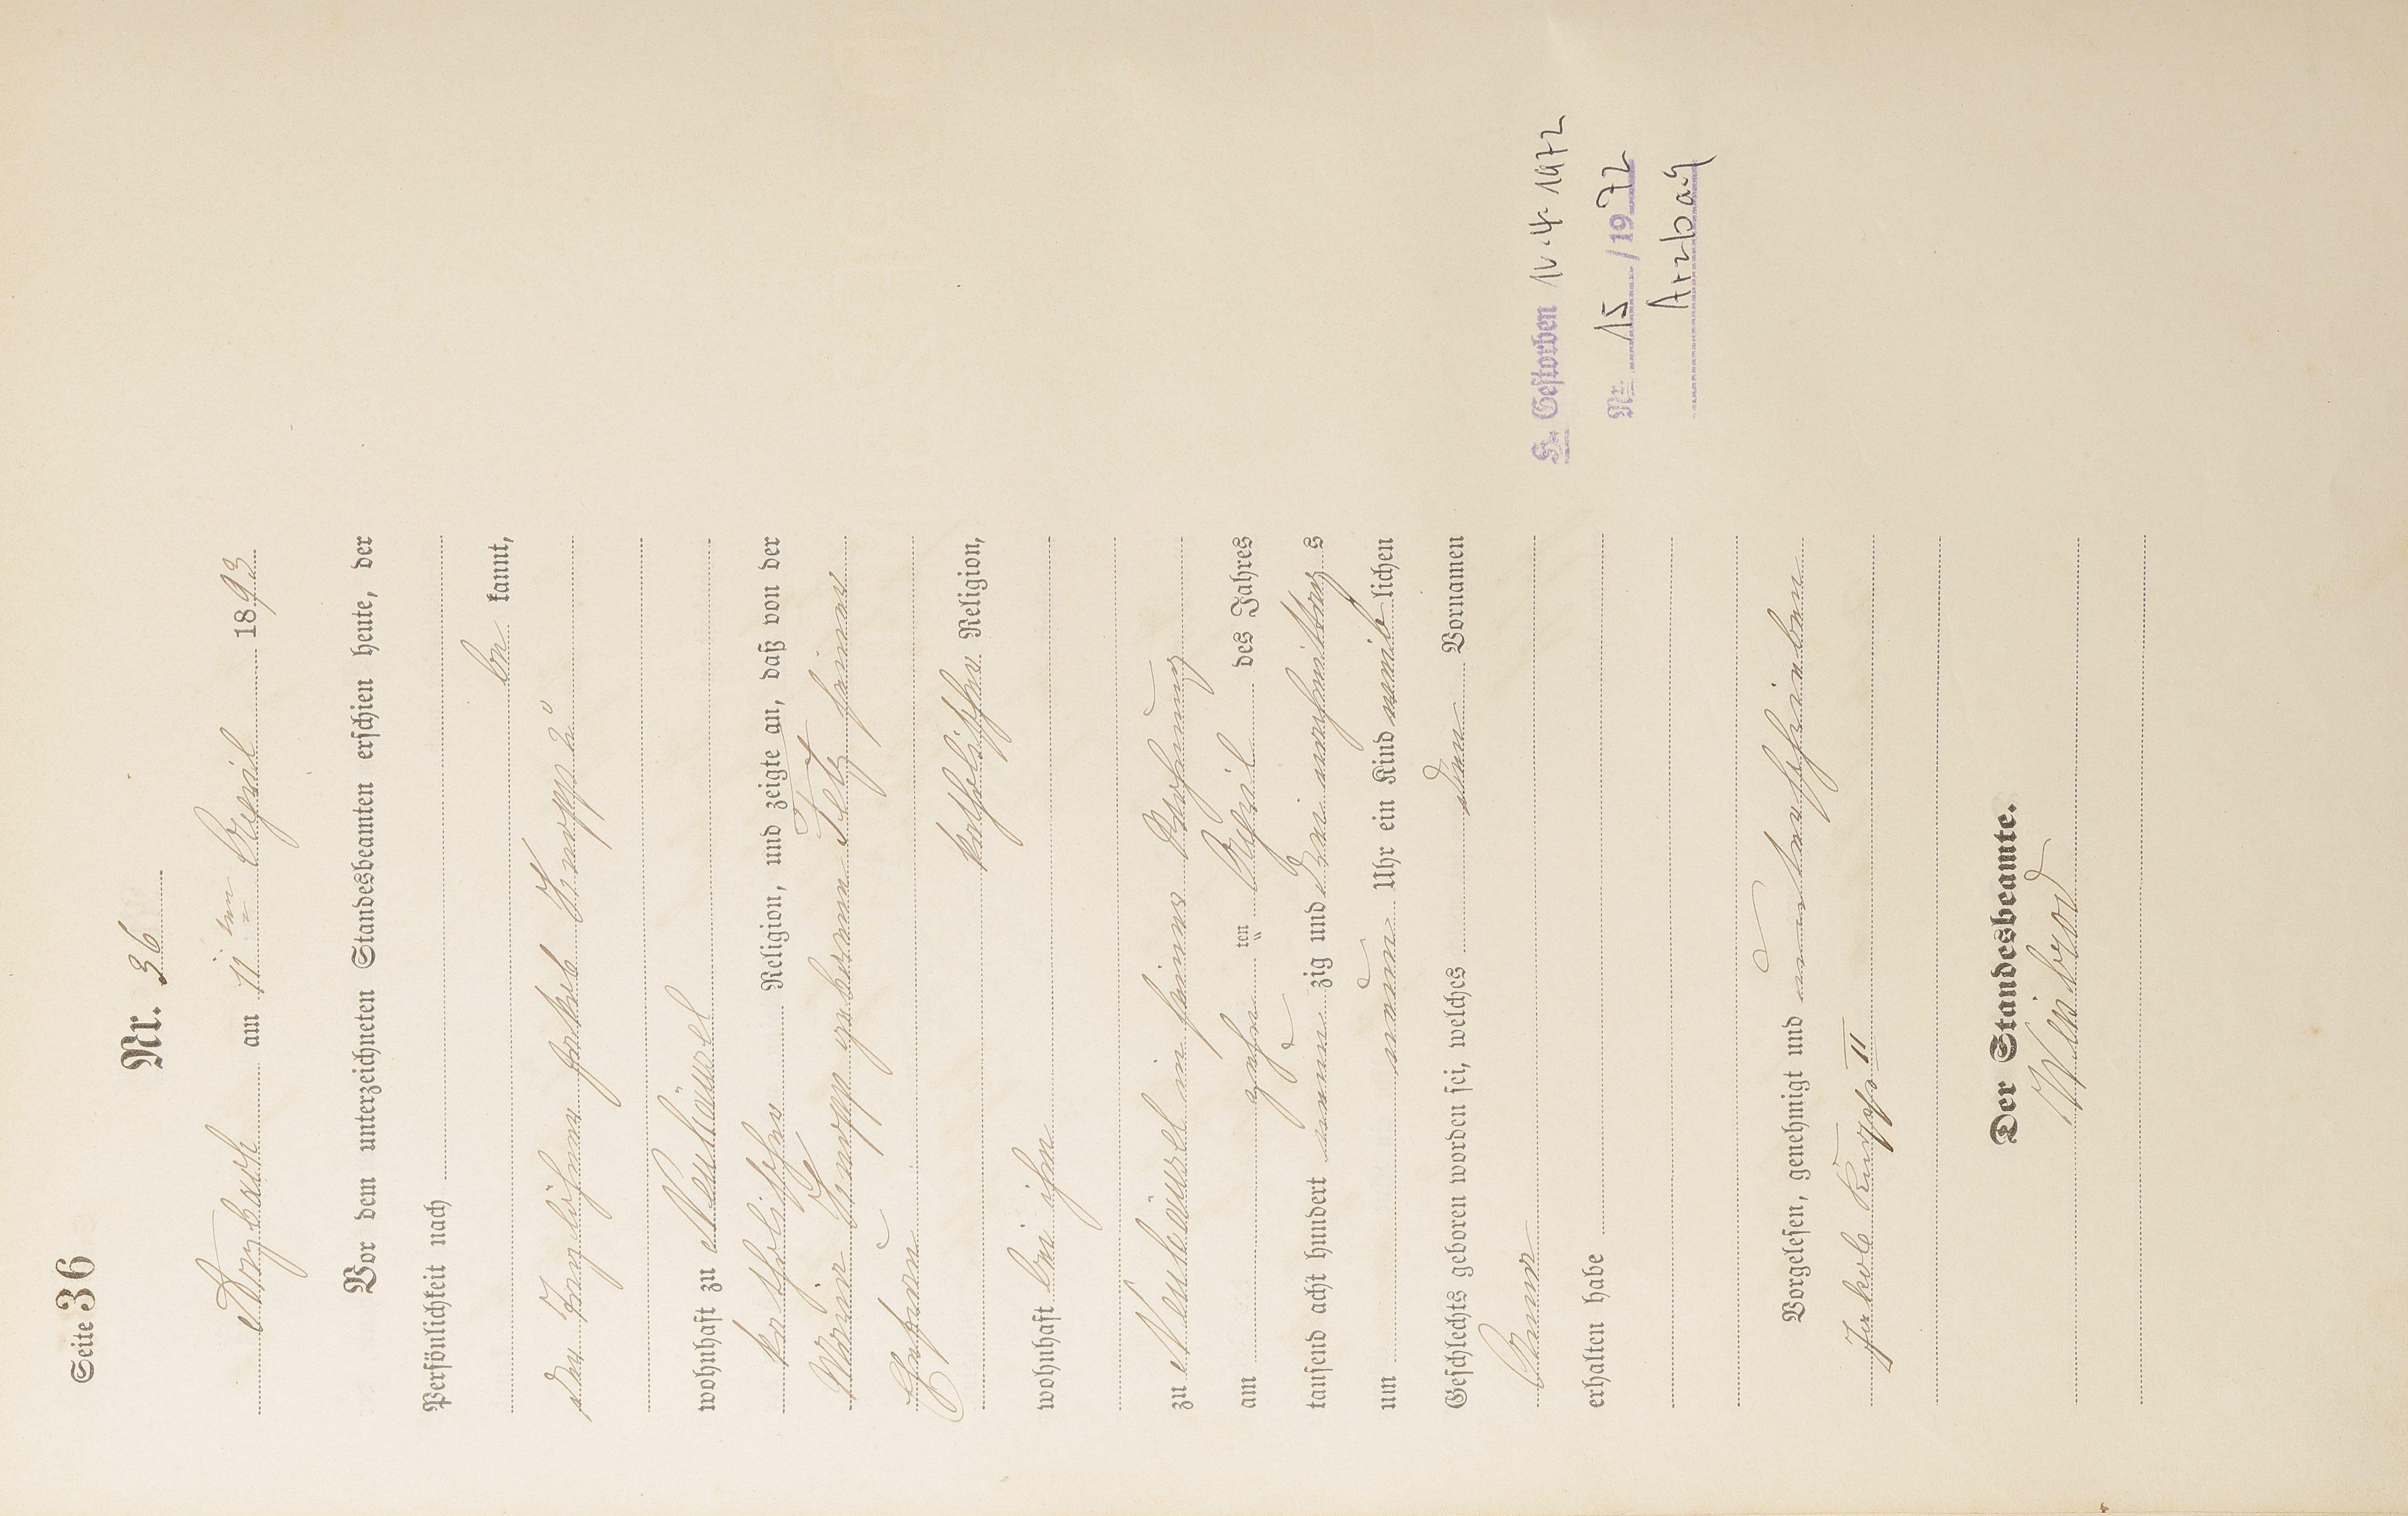 Seite 36
Nr. 36
Arzbach am 11ten April 1893
Vor dem unterzeichneten Standesbeamten erschien heute, der
Persönlichkeit nach
be kannt,
der Tagelöhner Jakob Knopp 2r
wohnhaft zu Neuhäusel
katholischer Religion, und zeigte an, daß von der
Maria Knopp geborene Fetz seiner
Ehefrau
katholischer Religion,
wohnhaft bei ihm
zu Neuhäusel in seiner Wohnung
am zehn ten April des Jahres
tausend acht hundert neun zig und drei nachmittag s
um neun Uhr ein Kind weib lichen
Geschlechts geboren worden sei, welches den Vornamen
Anna
erhalten habe
G. Gestorben 4. 1972
Nr. 15 /1972
Arzbach
Vorgelesen, genehmigt und unterschrieben
Jakob Knopp II
Der Standesbeamte.